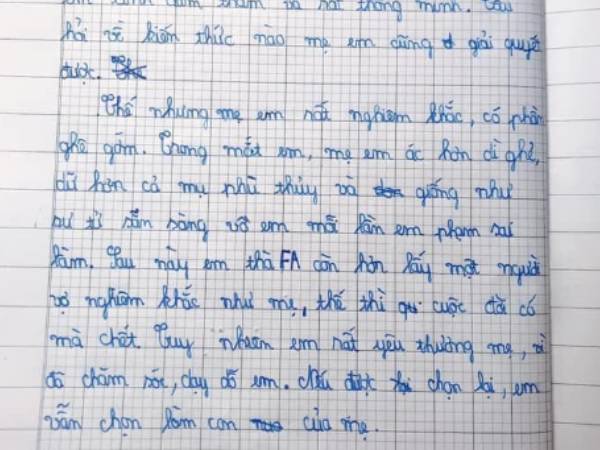 đảm thắm và rất thông minh. Câu
hỏi về kiến thức nào mẹ em cũng giải quyết
được.
Thế nhưng mẹ em rất nghiêm khắc, có phần
ghê gớm. Trong mắt em, mẹ em ác hơn dì ghẻ,
dữ hơn cả mụ phù thủy và giống như
sư tử sẵn sàng vồ em mỗi lần em phạm sai
lầm. Sau này em thà FA còn hơn lấy một người
vợ nghiêm khắc như mẹ, thế thì cuộc đời có
mà chết. Tuy nhiên em rất yêu thương mẹ, vì
đã chăm sóc, dạy dỗ em. Nếu được chọn lại, em
vẫn chọn làm con của mẹ.